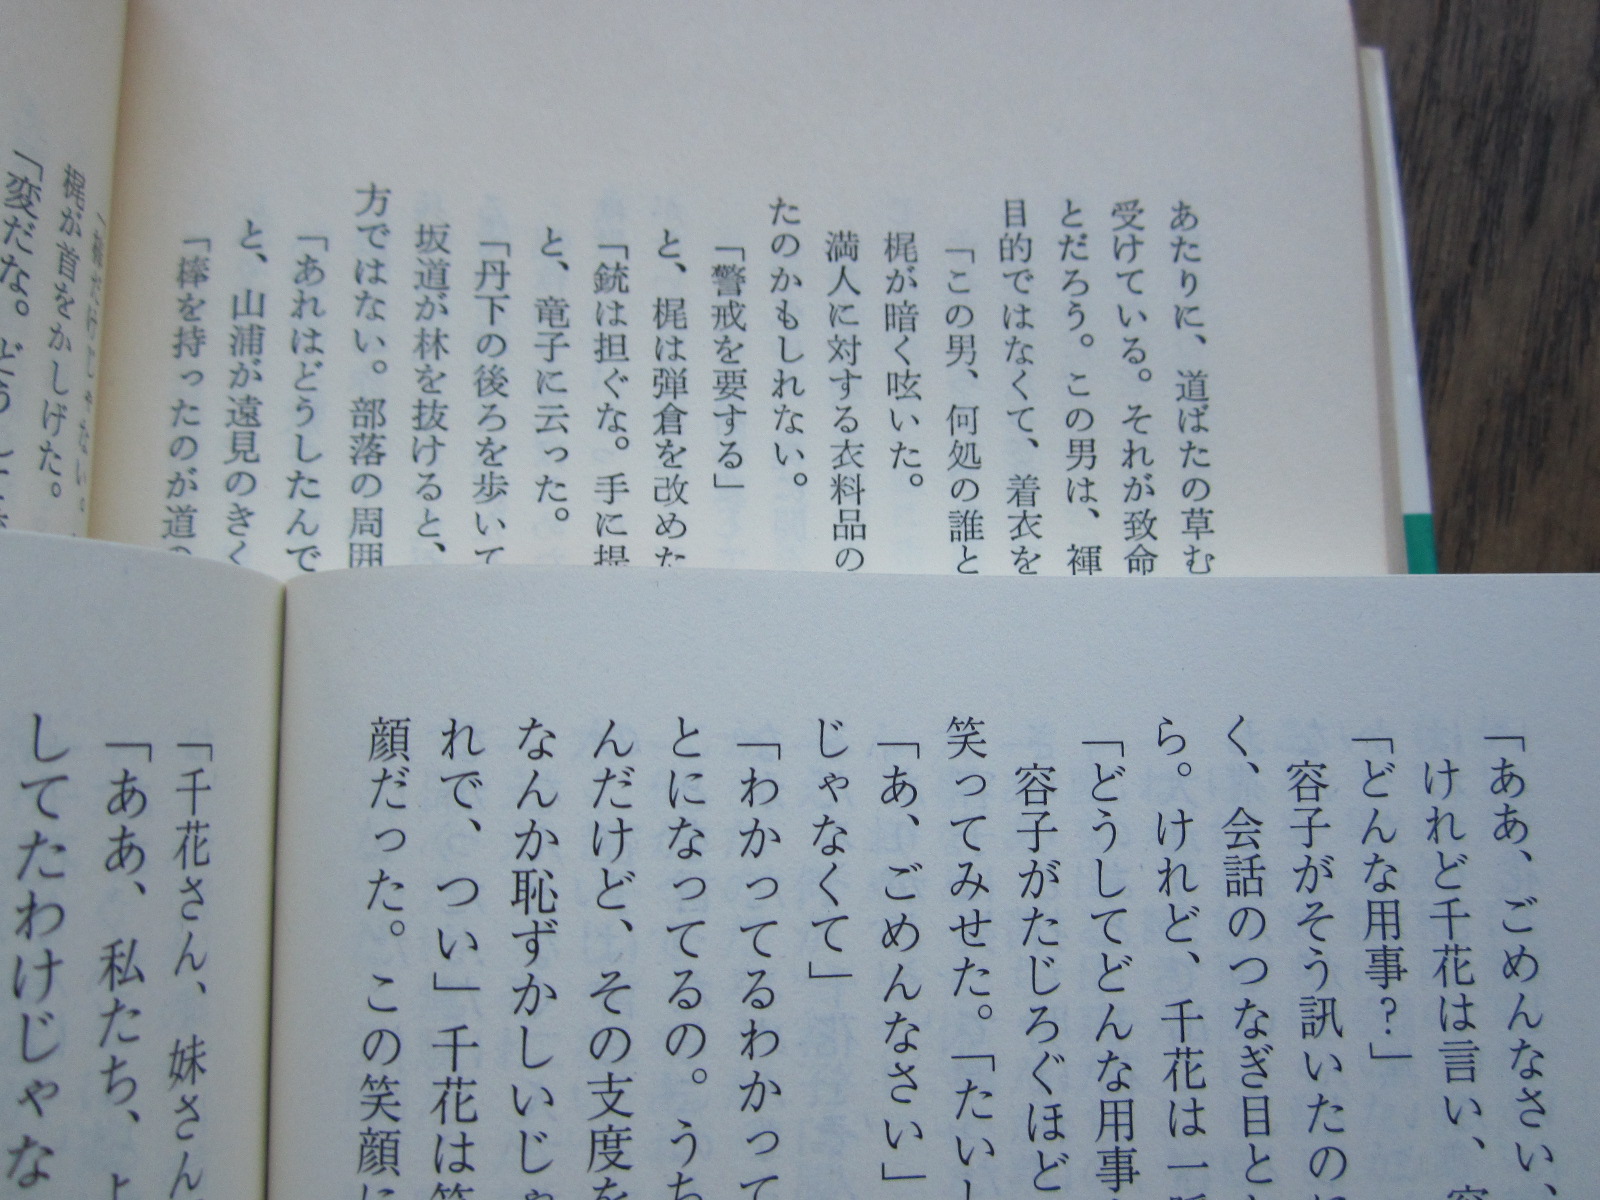 あたりに、道ばたの草む
受けている。それが致命
とだろう。この男は、褌
目的ではなくて、着衣を
「この男、何処の誰と
梶が暗く呟いた。
満人に対する衣料品の
たのかもしれない。
「警戒を要する」
と、梶は弾倉を改めた
「銃は担ぐな。手に提
と、竜子に云った。
「丹下の後ろを歩いて
坂道が林を抜けると、
方ではない。部落の周囲
「あれはどうしたんで
と、山浦が遠見のきく
「棒を持ったのが道の
梶が首をかしげた。
「変だな。どうし
「ああ、ごめんなさい、
けれど千花は言い、容
「どんな用事?」
容子がそう訊いたの
く、会話のつなぎ目と
ら。けれど、千花は一瞬
「どうしてどんな用事
容子がたじろぐほど
笑ってみせた。「たいし
「あ、ごめんなさい」
じゃなくて」
「わかってるわかって
とになってるの。うち
んだけど、その支度を
なんか恥ずかしいじゃ
れで、つい」千花は笑
顔だった。この笑顔に
「千花さん、妹さん
「ああ、私たち、よ
してたわけじゃな